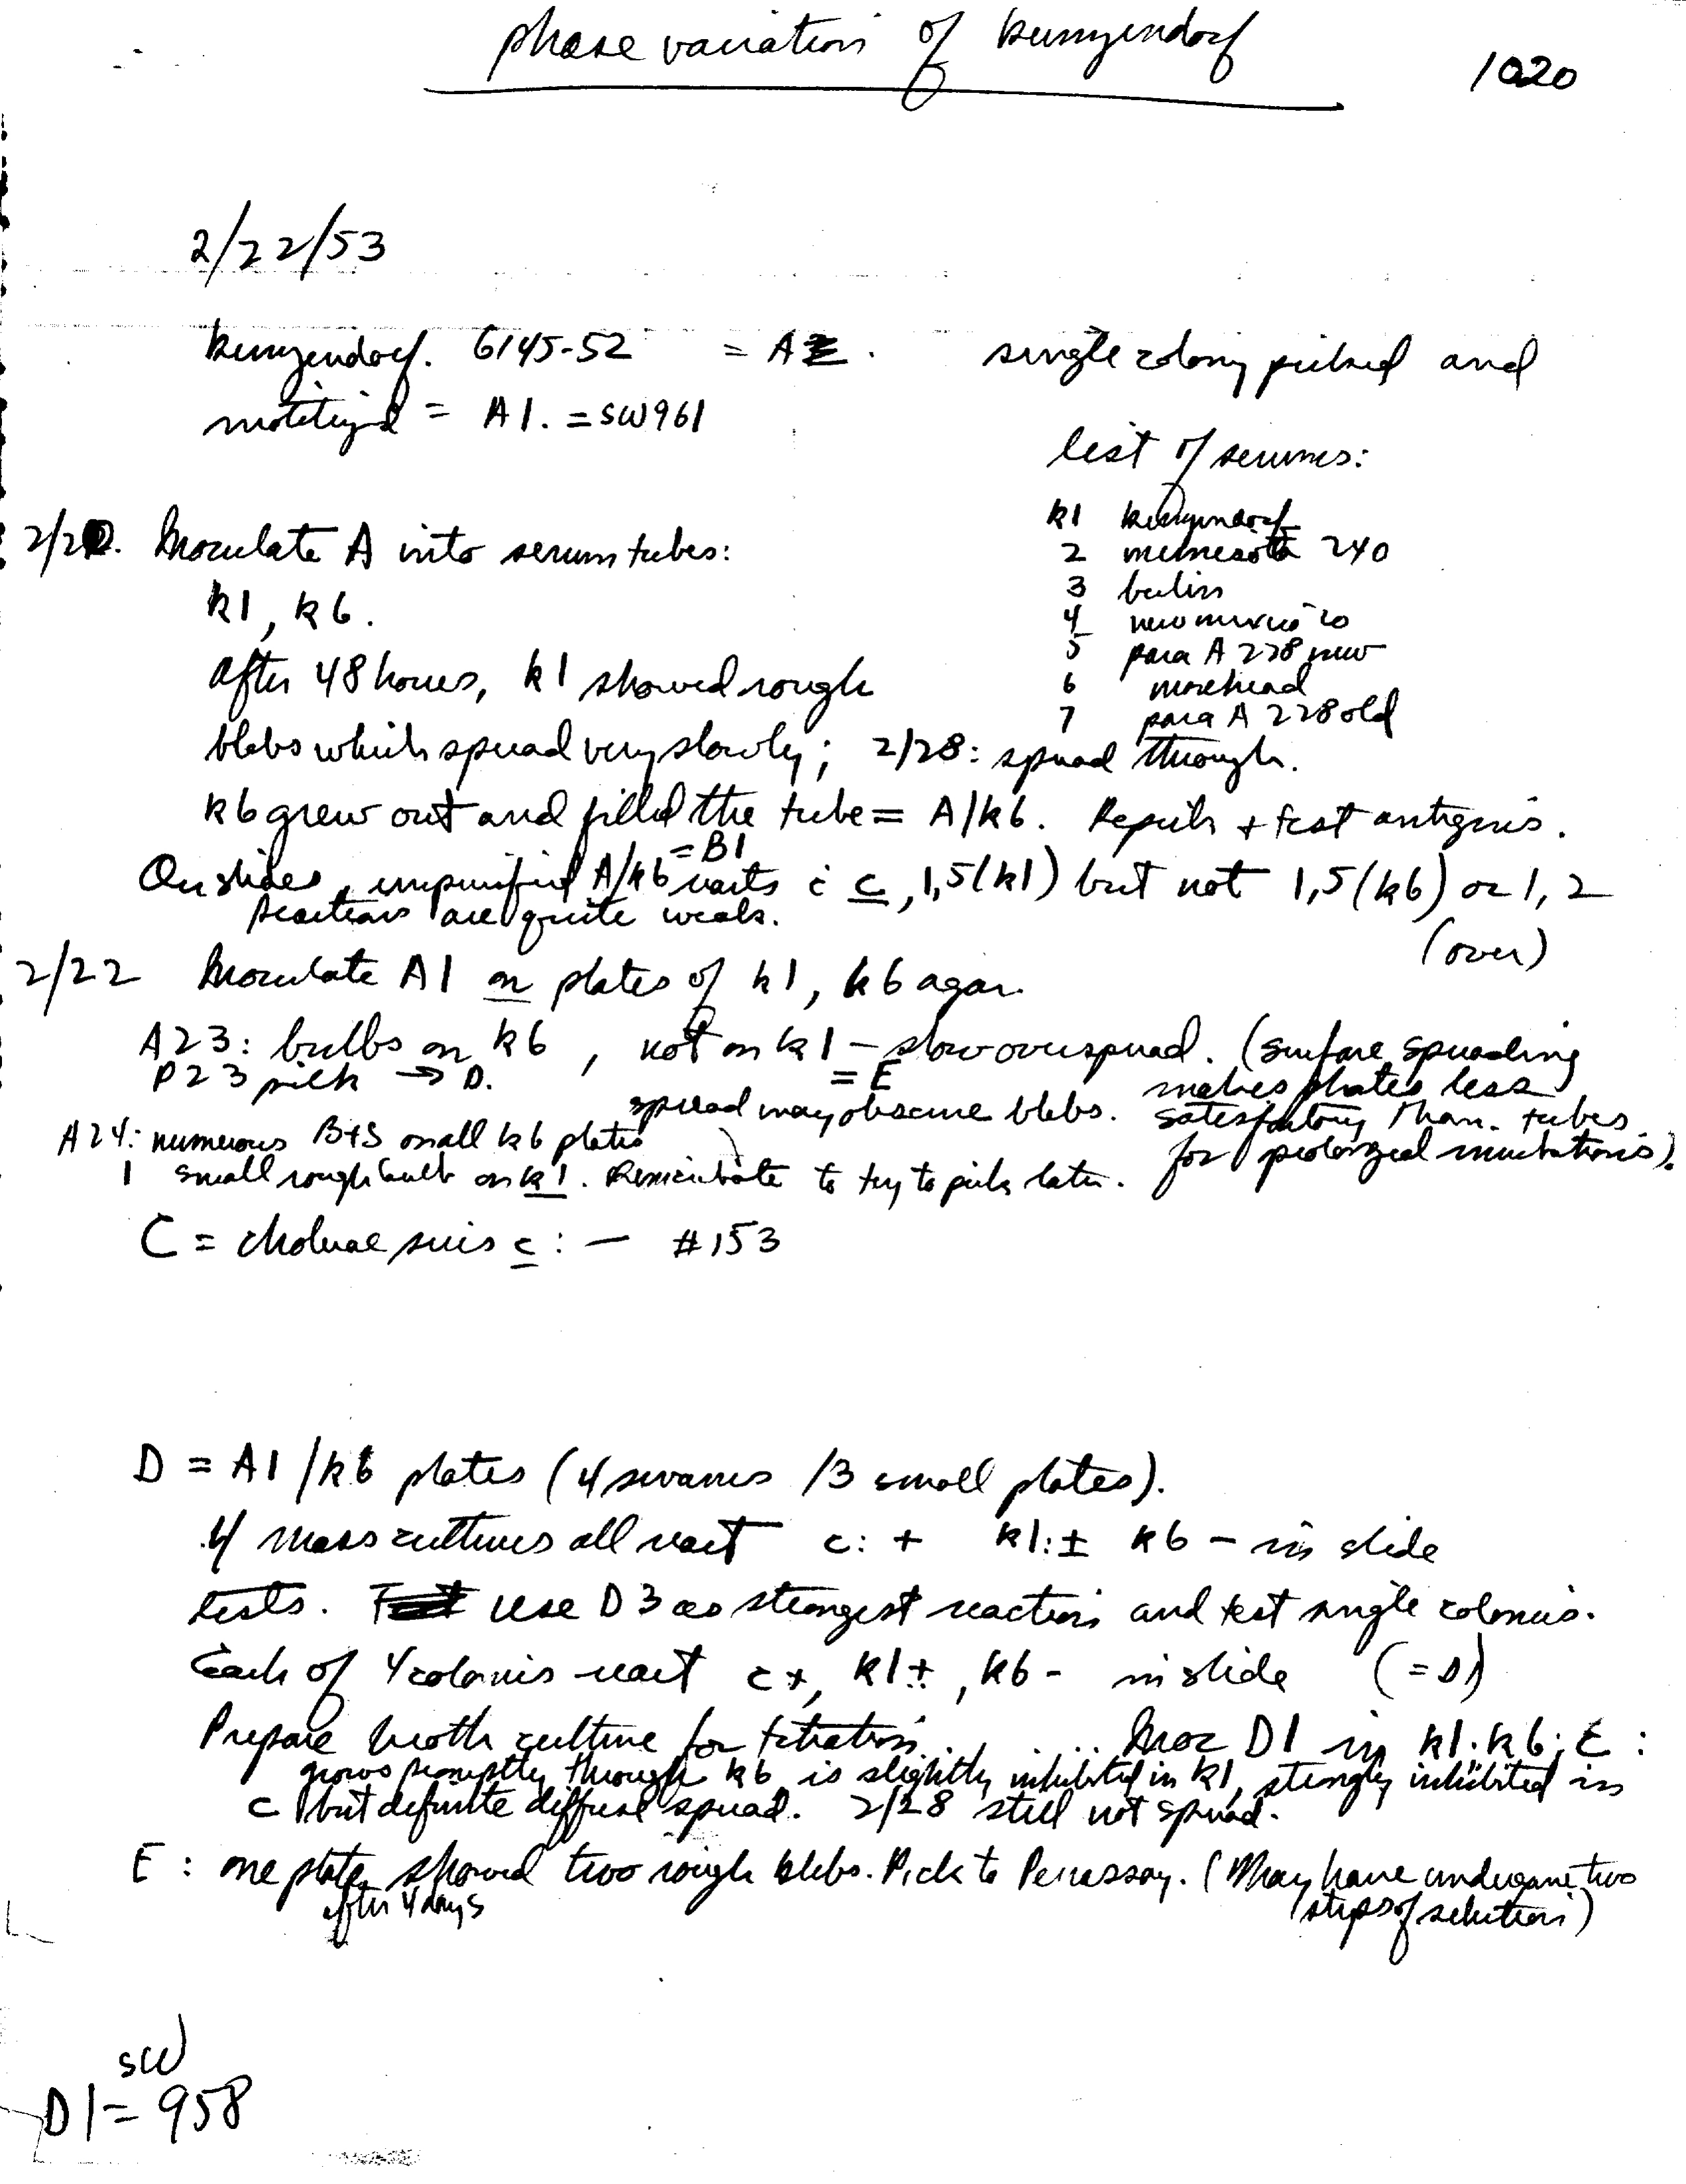 phase variation of kunzendorf
1020
2/22/53
kunzendorf. 6145-52 = A. single colony picked and
motilized = A1. = SW961
list of serums:
k1 kunzendorf
2 minnesota 240
3 berlin
4 new mexico 20
5 para A 228 new
6 morehead
7 para A 228 old
2/20. Inoculate A into serum tubes:
k1, k6.
After 48 hours, k1 showed rough
blebs which spread very slowly; 2/28: spread through.
k6 grew out and filled the tube = A/k6. Repurify + test antigens.
= B1
On slides, unpurified A/k6 reacts c̄ c, 1,5(k1) but not 1,5(k6) or 1,2
Reactions are quite weak.
(over)
2/22 Inoculate A1 on plates of k1, k6 agar.
A23: bulbs on k6, not on k1 – slow overspread. (Surface spreading
P23 pick → D. = E makes plates less
spread may obscure blebs. satisfactory than tubes
A24: numerous B+S on all k6 plates for prolonged incubations).
1 small rough bulb on k1. Reincubate to try to pick later.
C = cholerae suis c : — #153
D = A1/k6 plates (4 swarms /3 small plates).
4 mass cultures all react c: + k1: ± k6 – in slide
tests. Use D3 as strongest reaction and test single colonies.
Each of 4 colonies react c+, k1±, k6- in slide (=D1)
Prepare broth culture for titration. .... Inoc D1 in k1. k6; C :
grows promptly through k6, is slightly inhibited in k1, strongly inhibited in
c but definite diffuse spread. 2/28 still not spread.
E : one plate showed two rough blebs. Pick to Penassay. (May have undergone two
after 4 days steps of selection)
SW
D1 = 958